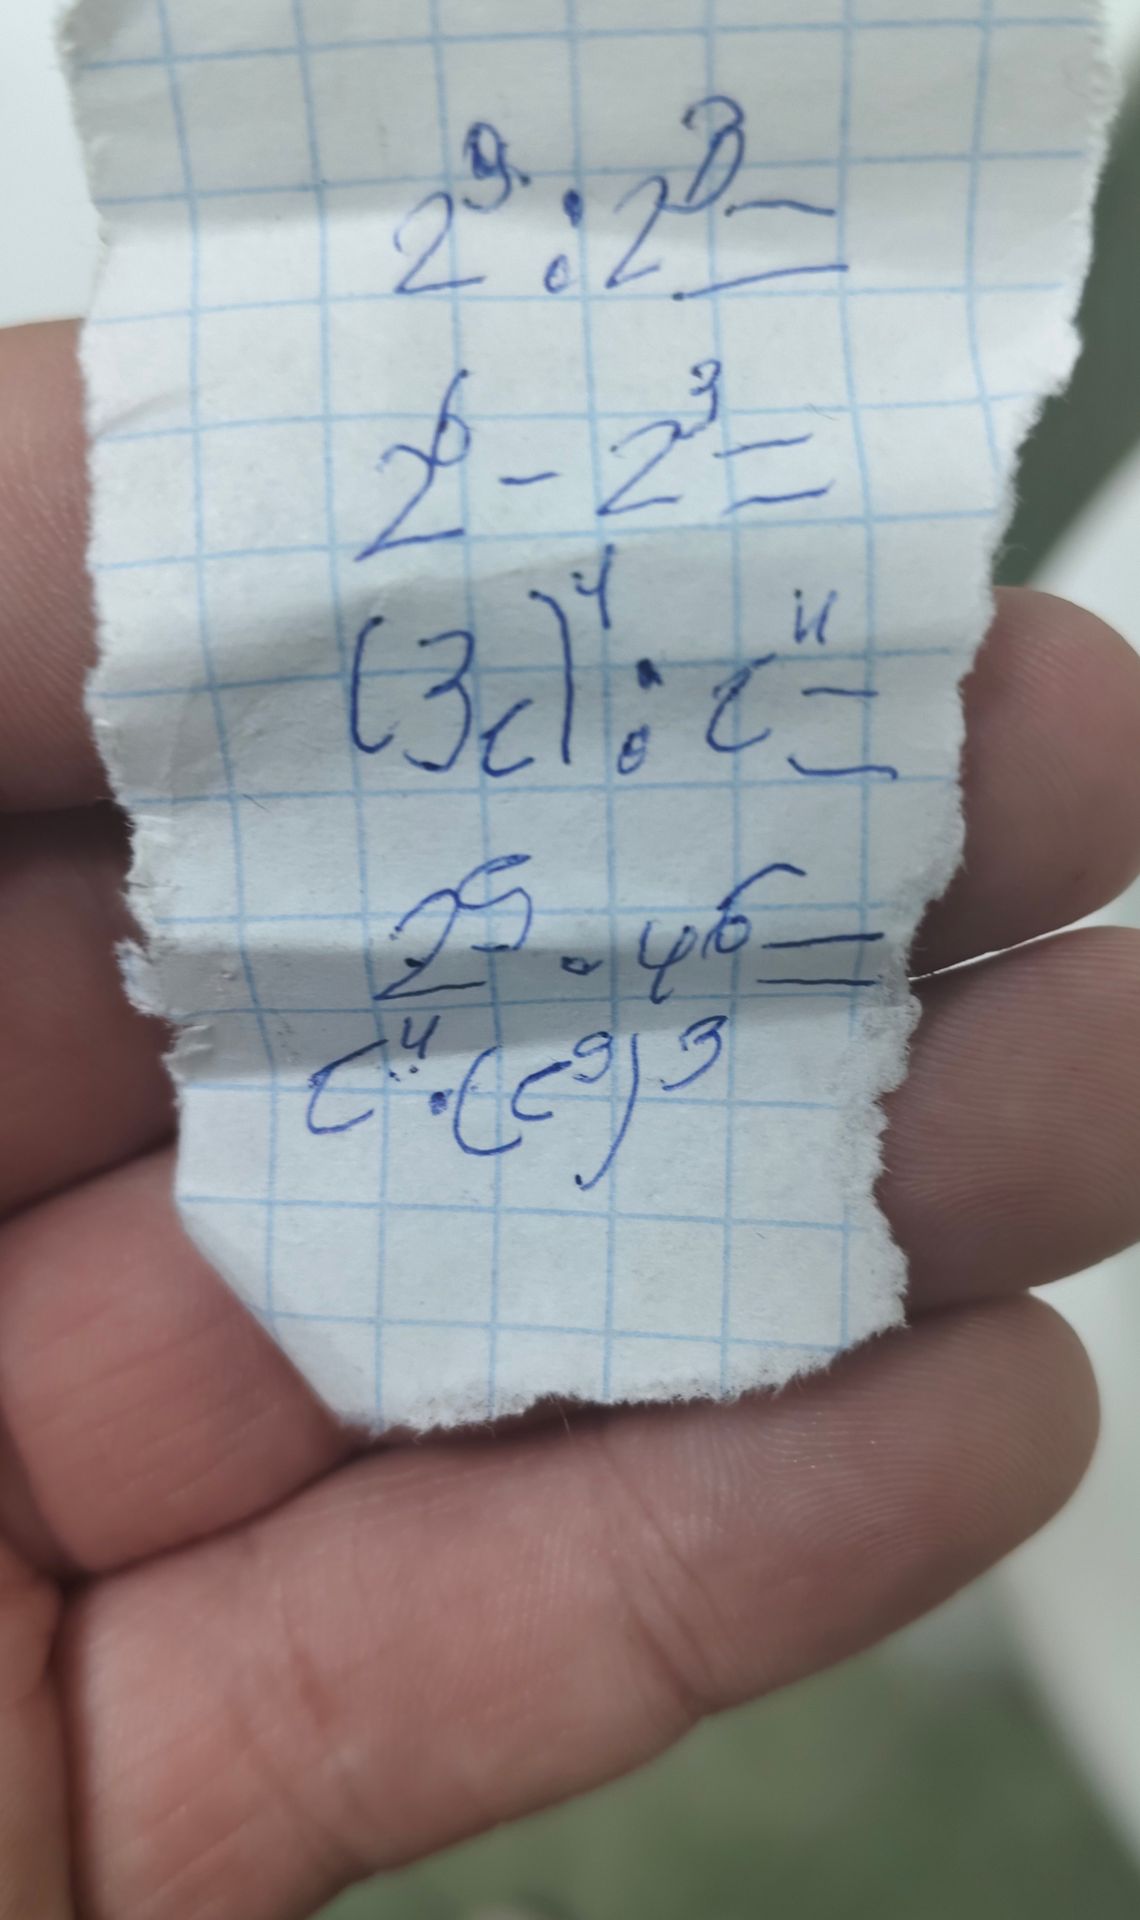 2⁹ : 2³ =
2⁶ - 2³ =
(3c)⁴ : c⁴ =
2⁵ · 4⁶ =
c⁴ · (c⁹)³